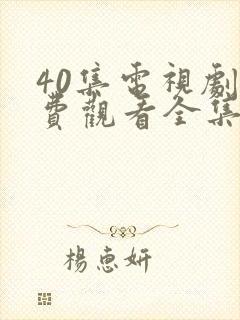 40集電視劇
費觀看全集
楊惠妍